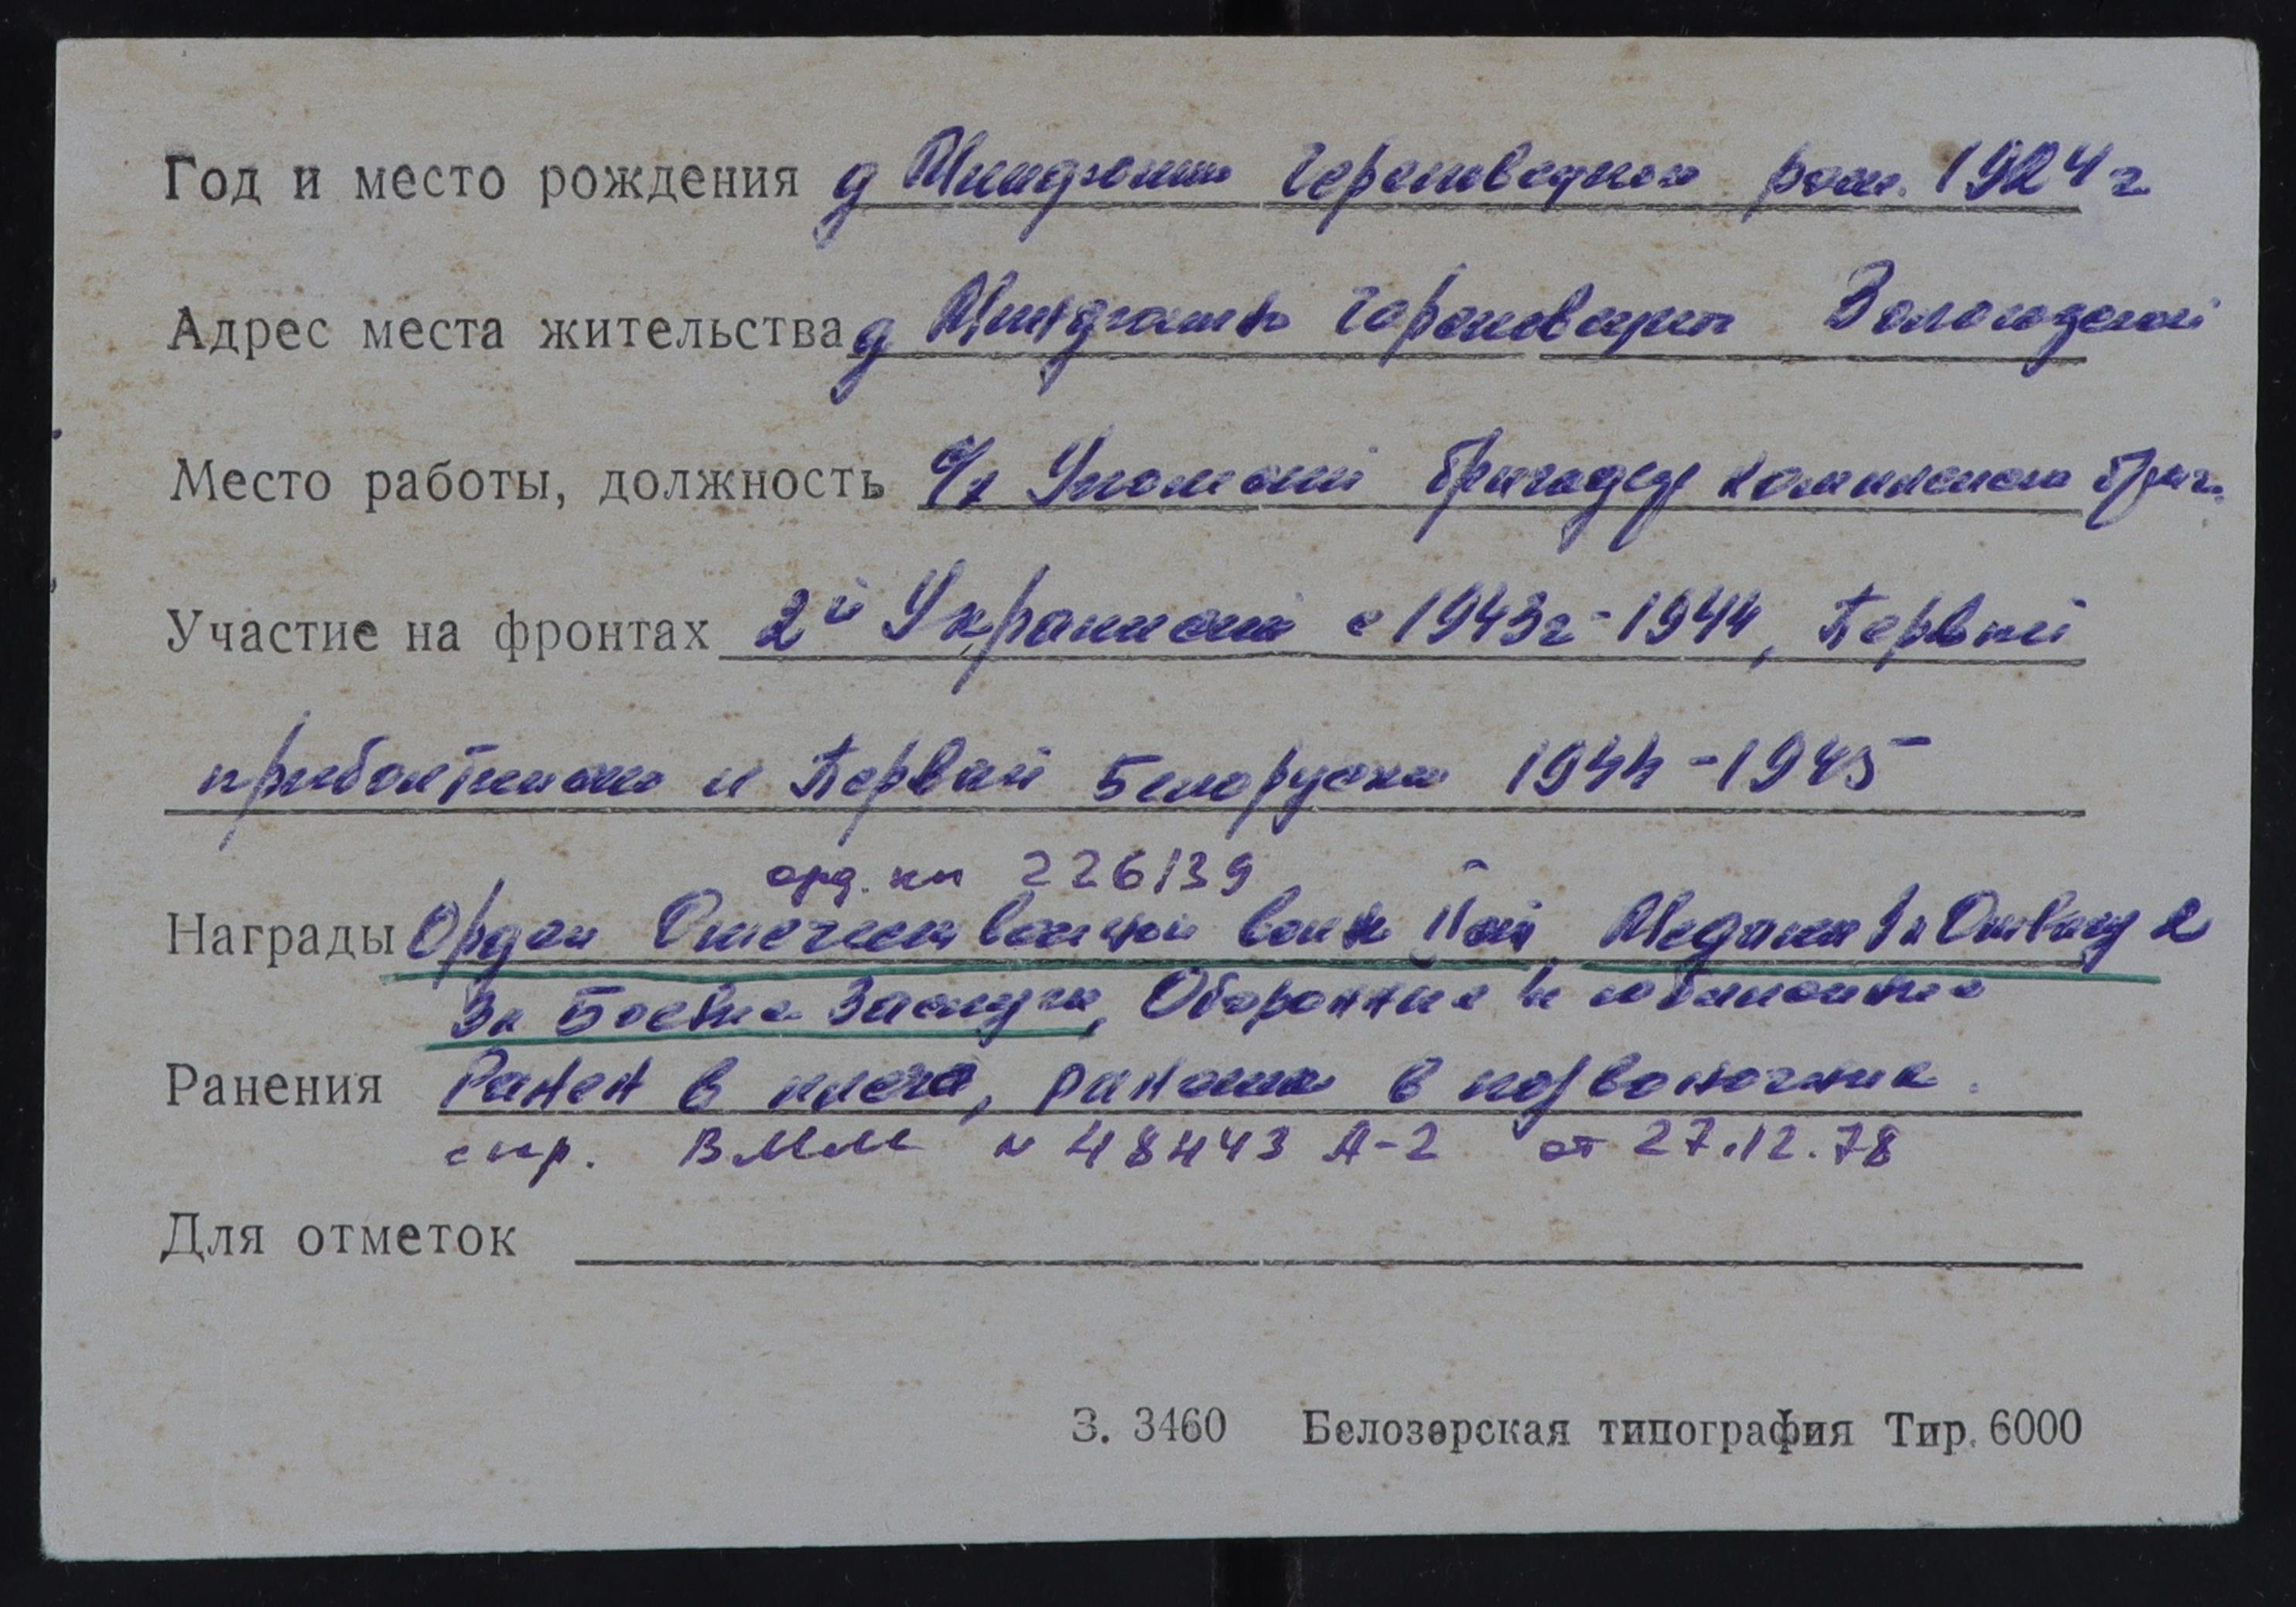 Год и место рождения д Череповецкого рож. 1924 г
Адрес места жительства д Череповецкого Вологодской
Место работы, должность с/з Уломский бригадир комплексной бриг.
Участие на фронтах 2й Украинский с 1943г-1944, Первый
прибалтийский и Первый Белорусский 1944-1945
орд. кн 226139
Награды Орден Отечественной войны IIой, Медали За Отвагу 2
За Боевые Заслуги, Оборонные и юбилейные
Ранения Ранен в плечо, ранение в позвоночник.
спр. ВММ № 48443 А-2 от 27.12.78
Для отметок
З. 3460 Белозерская типография Тир. 6000